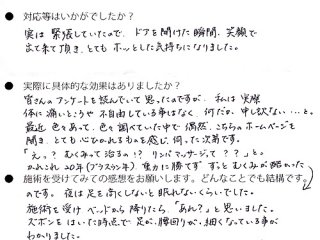 ● 対応等はいかがでしたか？
実は緊張していたので、ドアを開けた瞬間、笑顔で
出て来て頂き、とてもホッとした気持ちになりました。
● 実際に具体的な効果はありましたか？
皆さんのアンケートを読んでいて思ったのですが、私は実際
体に痛いところや不自由している事はなく、何だか申し訳ない…と。
最近色々あって、色々調べていた中で偶然、こちらのホームページを
開き、とても心ひかれるものを感じ、伺った次第です。
「えっ？むくみって治るの!?リンパマッサージって？？」と。
かれこれ20年(プラスうん年)重力に勝てず、ずっとむくみが酷かった
● 施術を受けてみての感想をお願いします。どんなことでも結構です。
のです。夜は足を高くしないと眠れないくらいでした。
施術を受けベッドから降りたら、「あれ？」と思いました。
ズボンをはいた時点で足が、腰回りが、細くなっている事が
わかりました。